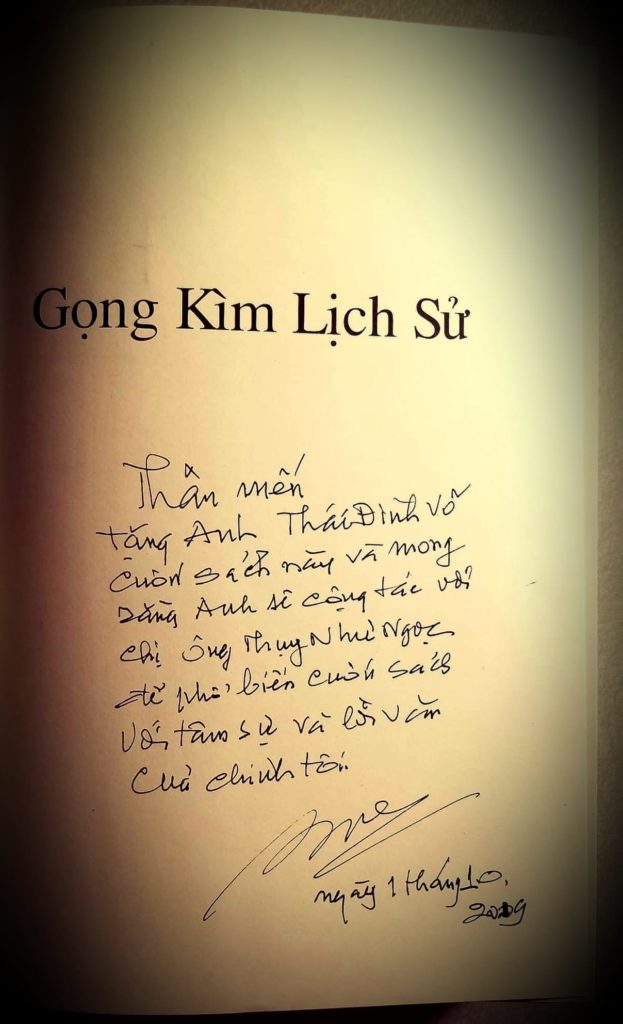 Gọng Kìm Lịch Sử
Thân mến
tặng Anh Thái Đình Võ
cuốn sách này và mong
rằng Anh sẽ cộng tác với
chị Ông Thụy Như Ngọc
để phổ biến cuốn sách
với tâm sự và lời văn
của chính tôi.
ngày 1 tháng 10.